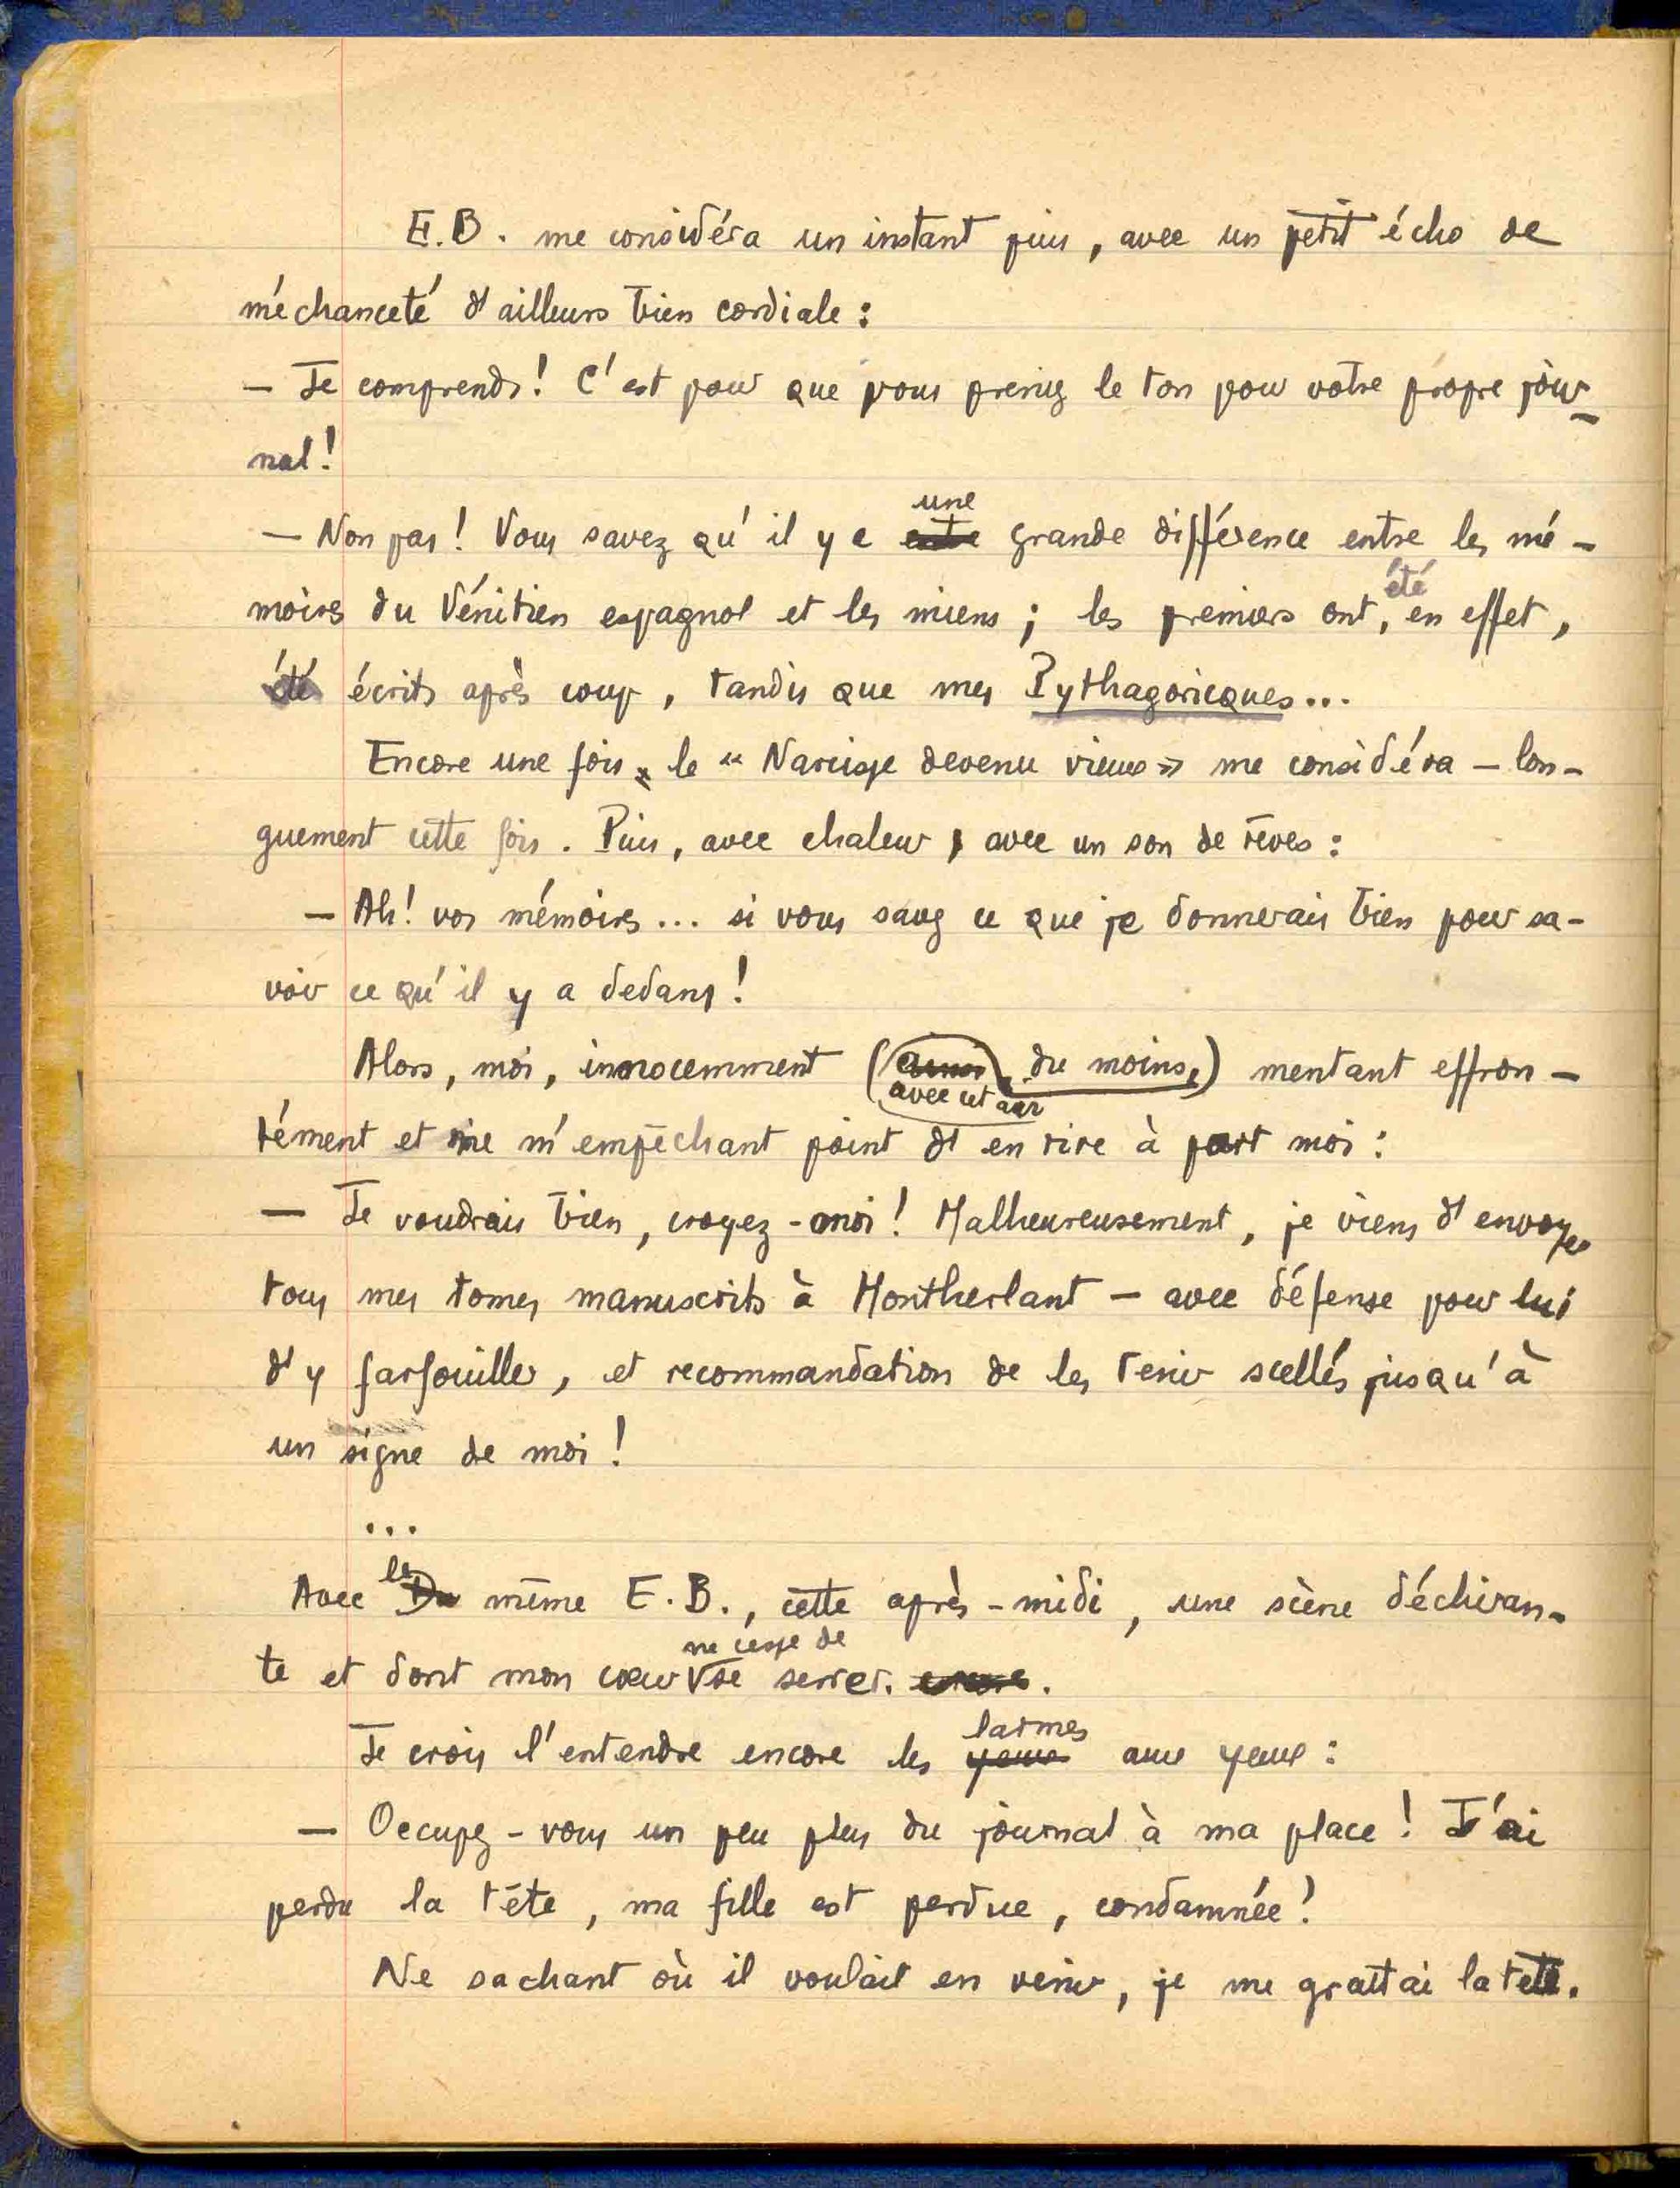 E.B. me considéra un instant puis, avec un petit écho de
méchanceté d'ailleurs bien cordiale :
— Je comprends ! C'est pour que vous preniez le ton pour votre propre jour-
nal !
— Non pas ! Vous savez qu'il y a une grande différence entre les mé-
moires du Vénitien espagnol et les miens ; les premiers ont, été en effet,
été écrits après coup, tandis que mes Pythagoricques...
Encore une fois, le « Narcisse devenu vieux » me considéra — lon-
guement cette fois. Puis, avec chaleur, avec un son de rêves :
— Ah ! vos mémoires... si vous savez ce que je donnerais bien pour sa-
voir ce qu'il y a dedans !
Alors, moi, innocemment (avec cet air du moins,) mentant effron-
tément et ne m'empêchant point d'en rire à part moi :
— Je voudrais bien, croyez-moi ! Malheureusement, je viens d'envoyer
tous mes tomes manuscrits à Montherlant — avec défense pour lui
d'y farfouiller, et recommandation de les tenir scellés jusqu'à
un signe de moi !
...
Avec le même E.B., cette après-midi, une scène déchiran-
te et dont mon cœur ne cesse de se serrer.
Je crois l'entendre encore les larmes aux yeux :
— Occupez-vous un peu plus du journal à ma place ! J'ai
perdu la tête, ma fille est perdue, condamnée !
Ne sachant où il voulait en venir, je me grattai la tête.